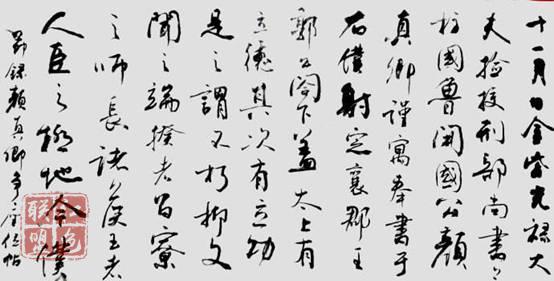 十一月日金紫光祿大
夫捡校刑部尚書上
柱國魯開國公顏
真卿謹寓奉書于
右僕射定襄郡王
郭公閣下蓋太上有
立德其次有立功
是之謂不朽抑又
聞之端揆者百寮
之師長諸侯王者
人臣之極地今僕
節録顏真卿争座位帖
聯盟